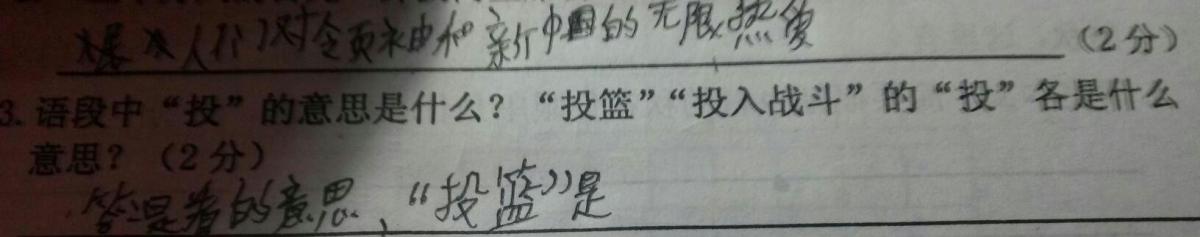 人们对领袖和新中国的无限热爱（2分）
3. 语段中“投”的意思是什么？“投篮”“投入战斗”的“投”各是什么
意思？（2分）
答:是看的意思、“投篮”是